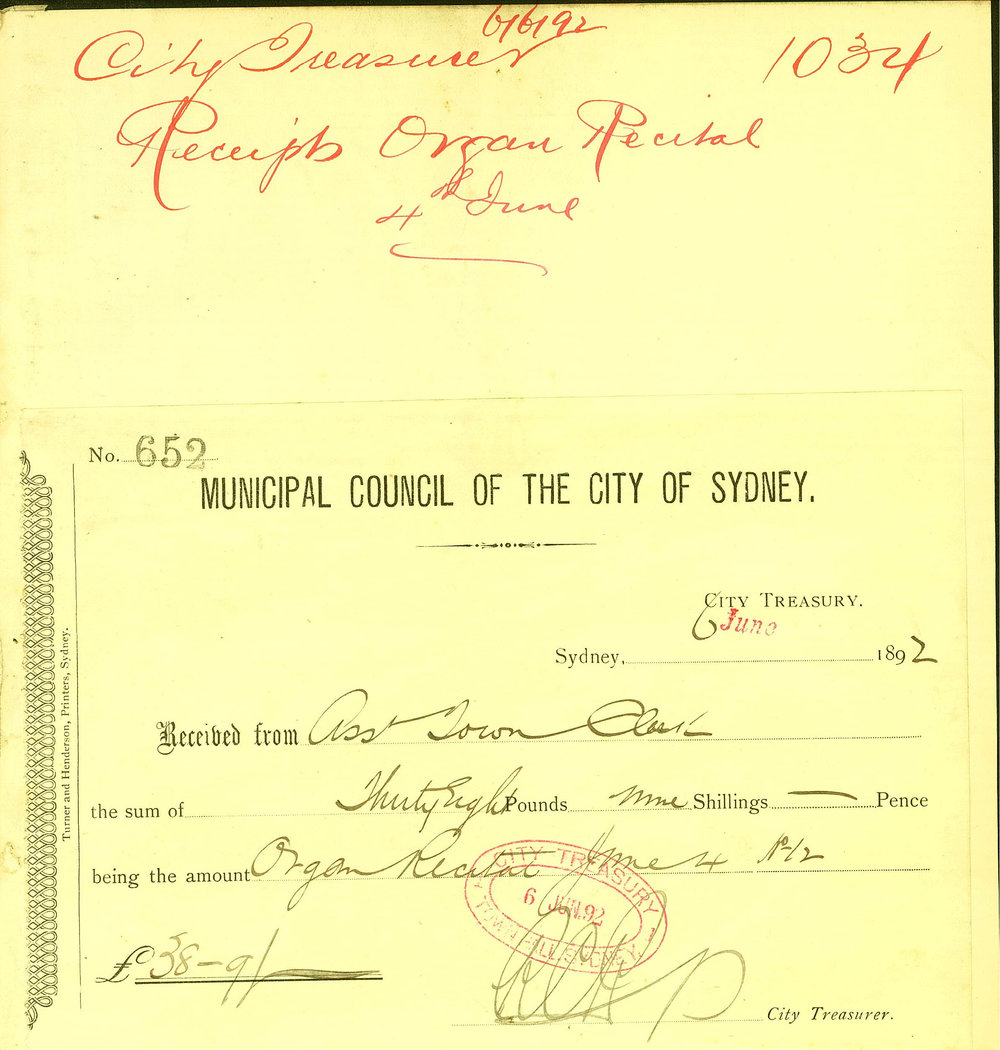 6/6/92
City Treasurer 1034
Receipts Organ Recital
4th June
No. 652
MUNICIPAL COUNCIL OF THE CITY OF SYDNEY.
CITY TREASURY.
6 June
Sydney, 1892
Received from Asst Town Clerk
the sum of Thirty Eight Pounds Nine Shillings — Pence
being the amount Organ Recital June 4 No 12
CITY TREASURY
6 JUN. 92
TOWN HALL SYDNEY.
£38-9/
City Treasurer.
Turner and Henderson, Printers, Sydney.